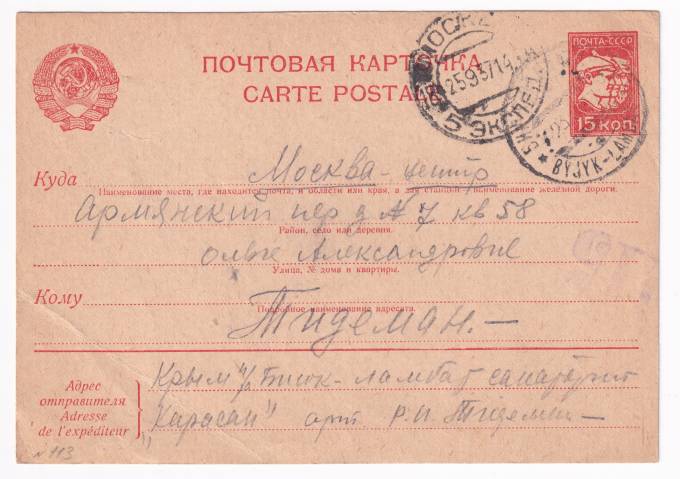 ПОЧТОВАЯ КАРТОЧКА
CARTE POSTALE
ПОЧТА-СССР
15 КОП.
МОСКВА
25 9 37 14
5 ЭКСПЕД.
BYJYK-LAM
Куда Москва-центр
Наименование места, где находится почта, и области или края, а для станций и наименование железной дороги.
Армянский пер д № 7 кв 58
Район, село или деревня.
Ольге Александровне
Улица, № дома и квартиры.
Кому
Подробное наименование адресата.
Тидеман.—
Адрес отправителя
Adresse de l'expéditeur
Крым Биюк-Ламбат санаторий
"Карасан" Тидеман—
N 113